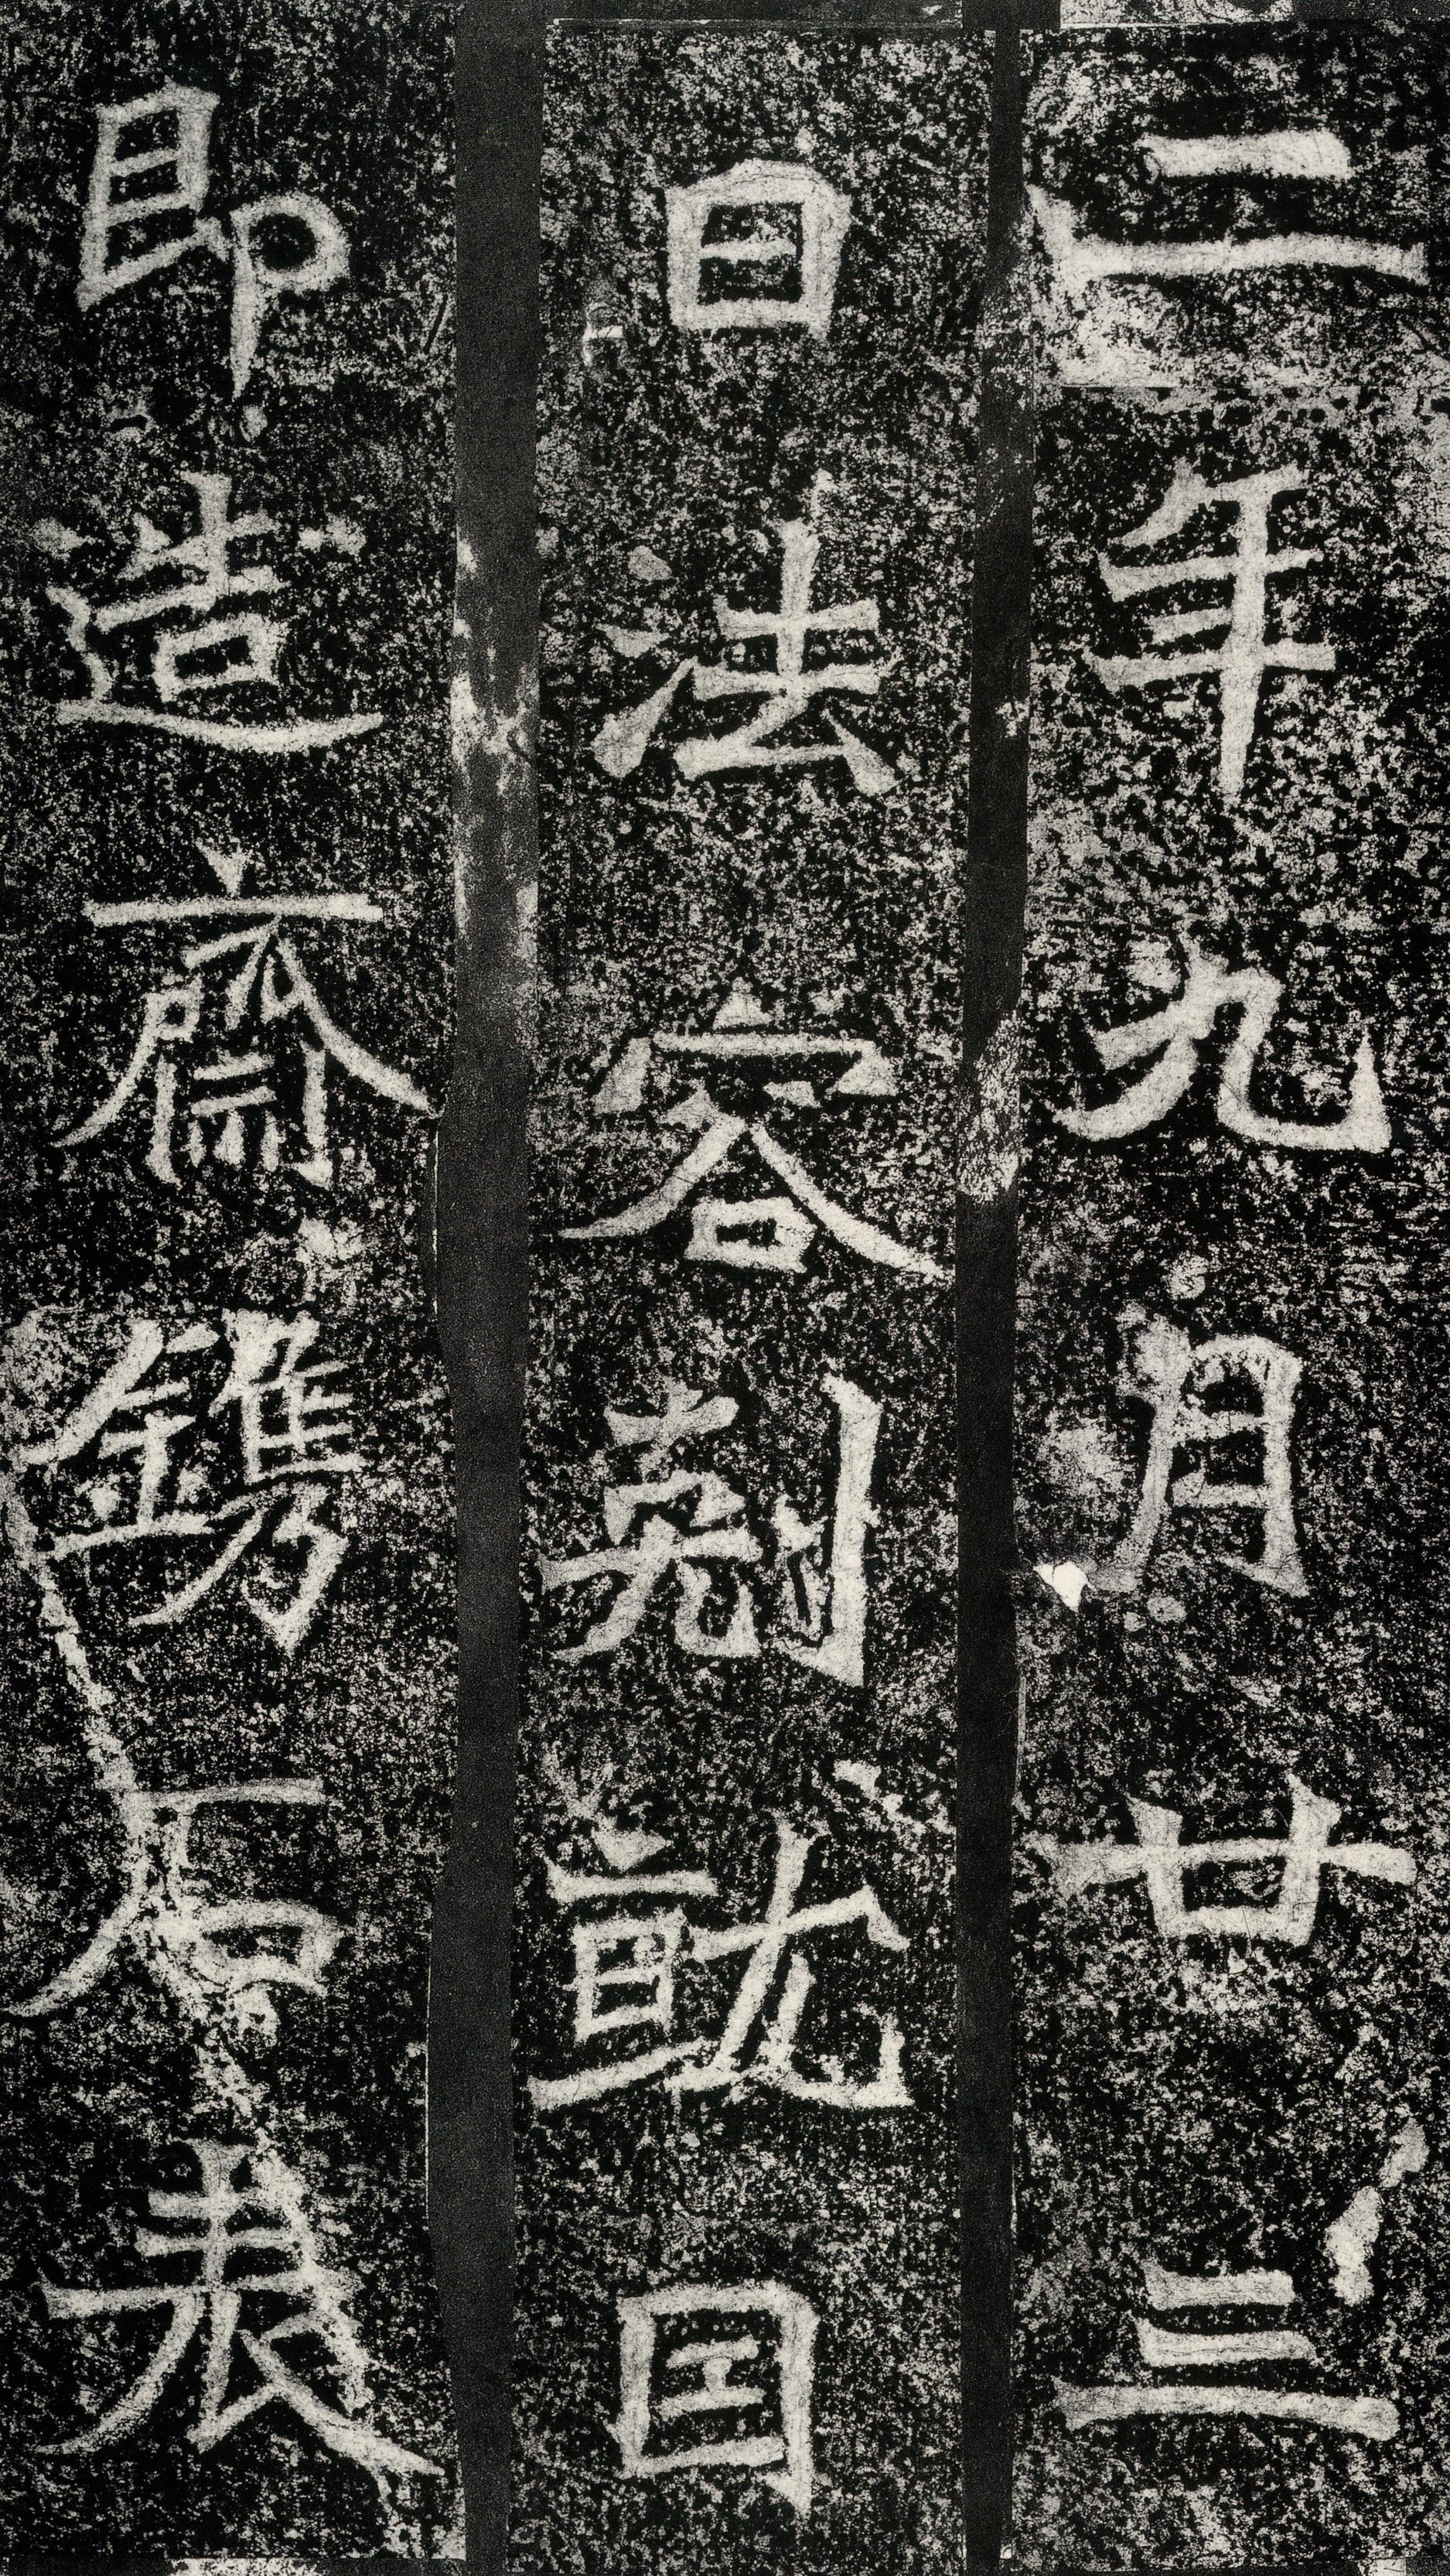 二年九月廿三
日法容剋就囙
即造齋鐫石表